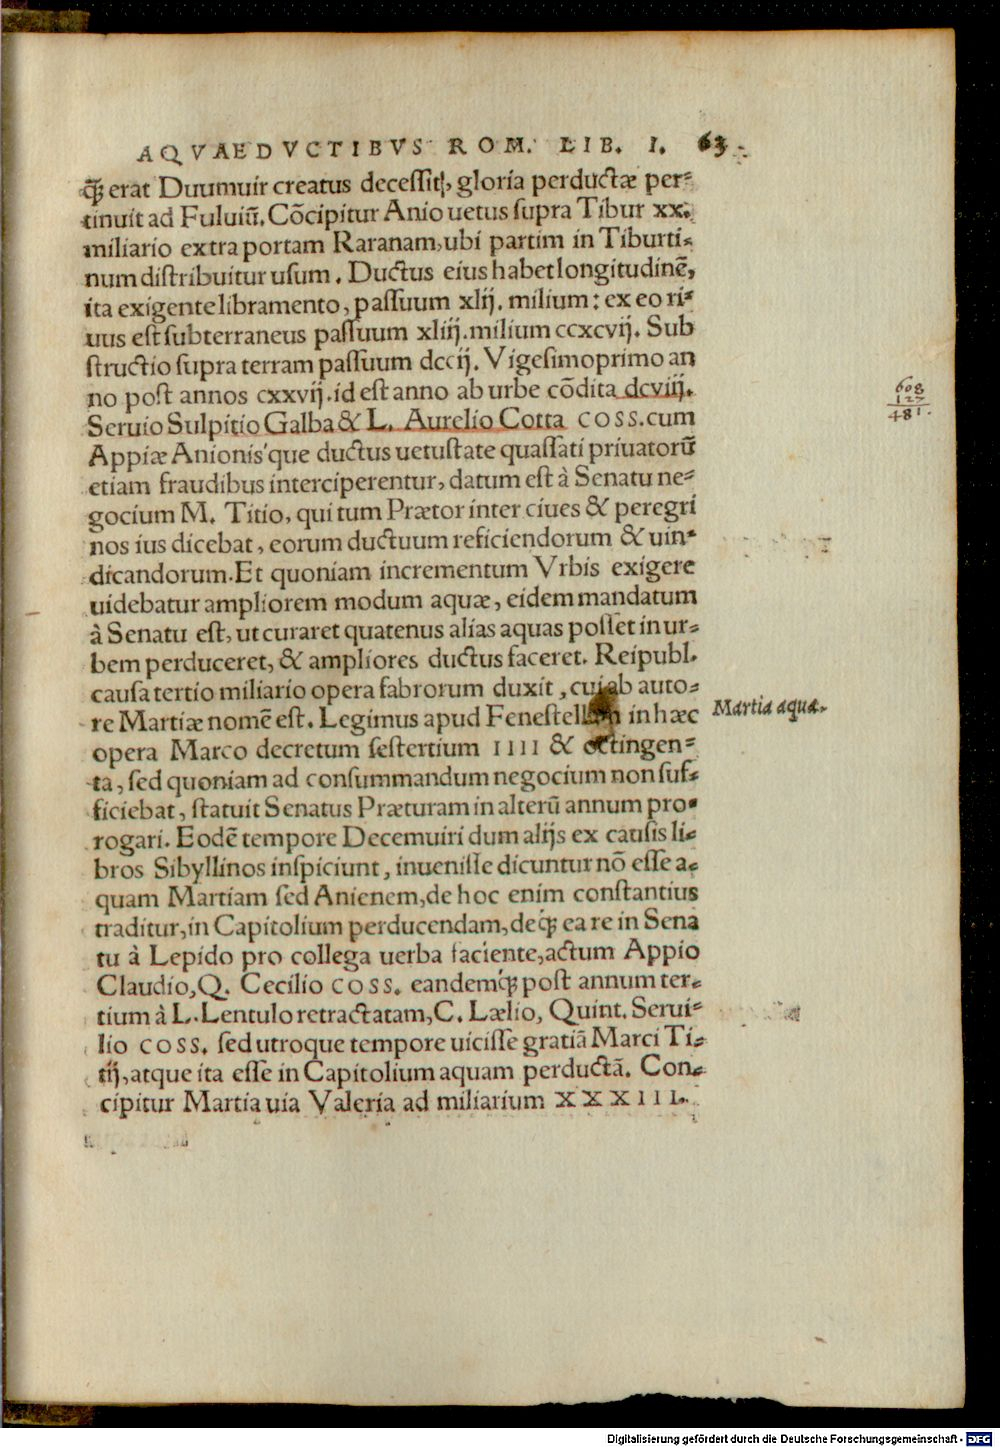 AQVAEDVCTIBVS ROM. LIB. I. 63
q̃ꝫ erat Duumuir creatus decessit, gloria perductæ per-
tinuit ad Fuluiũ. Cõcipitur Anio uetus supra Tibur xx.
miliario extra portam Raranam, ubi partim in Tiburti-
num distribuitur usum. Ductus eius habet longitudinẽ,
ita exigente libramento, passuum xlij. milium: ex eo ri-
uus est subterraneus passuum xliij. milium ccxcvij. Sub
structio supra terram passuum dccij. Vigesimoprimo an
no post annos cxxvij. id est anno ab urbe cõdita dcviij.
Seruio Sulpitio Galba & L. Aurelio Cotta COSS. cum
Appiæ Anionis'que ductus uetustate quassati priuatorũ
etiam fraudibus interciperentur, datum est à Senatu ne-
gocium M. Titio, qui tum Prætor inter ciues & peregri
nos ius dicebat, eorum ductuum reficiendorum & uin-
dicandorum. Et quoniam incrementum Vrbis exigere
uidebatur ampliorem modum aquæ, eidem mandatum
à Senatu est, ut curaret quatenus alias aquas posset in ur-
bem perduceret, & ampliores ductus faceret. Reipubl.
causa tertio miliario opera fabrorum duxit, cui ab auto-
re Martiæ nomẽ est. Legimus apud Fenestellam in hæc
opera Marco decretum sestertium IIII & octingen-
ta, sed quoniam ad consummandum negocium non suf-
ficiebat, statuit Senatus Præturam in alterũ annum pro-
rogari. Eodẽ tempore Decemuiri dum alijs ex causis li-
bros Sibyllinos inspiciunt, inuenisse dicuntur nõ esse a-
quam Martiam sed Anienem, de hoc enim constantius
traditur, in Capitolium perducendam, deq̃ꝫ ea re in Sena
tu à Lepido pro collega uerba faciente, actum Appio
Claudio, Q. Cecilio COSS. eandemq́ꝫ post annum ter-
tium à L. Lentulo retractatam, C. Lælio, Quint. Serui-
lio COSS. sed utroque tempore uicisse gratiã Marci Ti-
tij, atque ita esse in Capitolium aquam perductã. Con-
cipitur Martia uia Valeria ad miliarium XXXIII.
608
127
481.
Martia aqua.
Digitalisierung gefördert durch die Deutsche Forschungsgemeinschaft - DFG